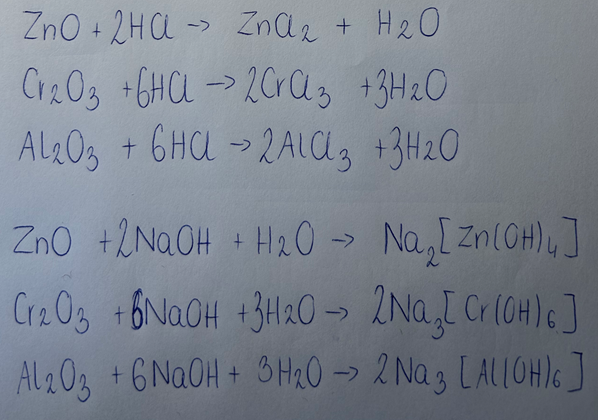 ZnO + 2HCl -> ZnCl2 + H2O
Cr2O3 + 6HCl -> 2CrCl3 + 3H2O
Al2O3 + 6HCl -> 2AlCl3 + 3H2O
ZnO + 2NaOH + H2O -> Na2[Zn(OH)4]
Cr2O3 + 6NaOH + 3H2O -> 2Na3[Cr(OH)6]
Al2O3 + 6NaOH + 3H2O -> 2Na3[Al(OH)6]